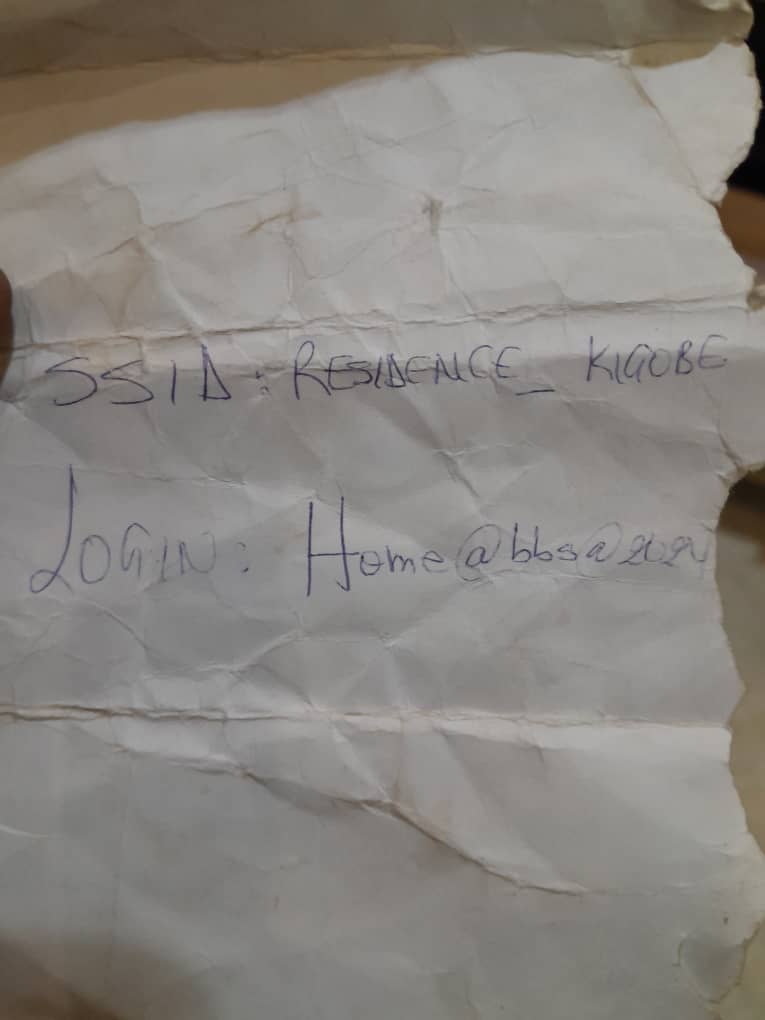 SSID: RESIDENCE_ KIGOBE
LOGIN: Home@bbs@2024